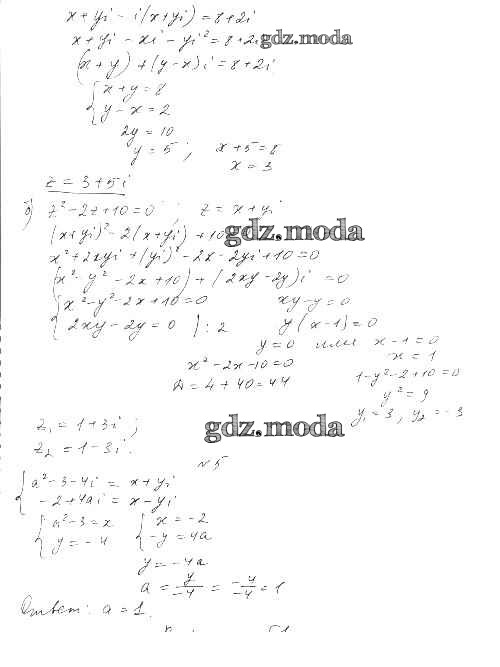 x + yi - i(x + yi) = 8 + 2i
x + yi - xi - yi² = 8 + 2i
gdz.moda
(x + y) + (y - x)i = 8 + 2i
{ x + y = 8
y - x = 2
2y = 10
y = 5 ; x + 5 = 8
x = 3
z = 3 + 5i
б) z² - 2z + 10 = 0 ; z = x + yi
(x + yi)² - 2(x + yi) + 10
gdz.moda
x² + 2xyi + (yi)² - 2x - 2yi + 10 = 0
(x² - y² - 2x + 10) + (2xy - 2y)i = 0
{ x² - y² - 2x + 10 = 0 xy - y = 0
2xy - 2y = 0 | : 2 y(x - 1) = 0
y = 0 или x - 1 = 0
x² - 2x - 10 = 0 x = 1
D = 4 + 40 = 44 1 - y² - 2 + 10 = 0
y² = 9
z₁ = 1 + 3i ; gdz.moda y₁ = 3, y₂ = -3
z₂ = 1 - 3i.
№5
{ a² - 3 - 4i = x + yi
- 2 + 4ai = x - yi
{ a² - 3 = x { x = -2
y = -4 -y = 4a
y = -4a
a = y/-4 = -4/-4 = 1
Ответ: a = 1.